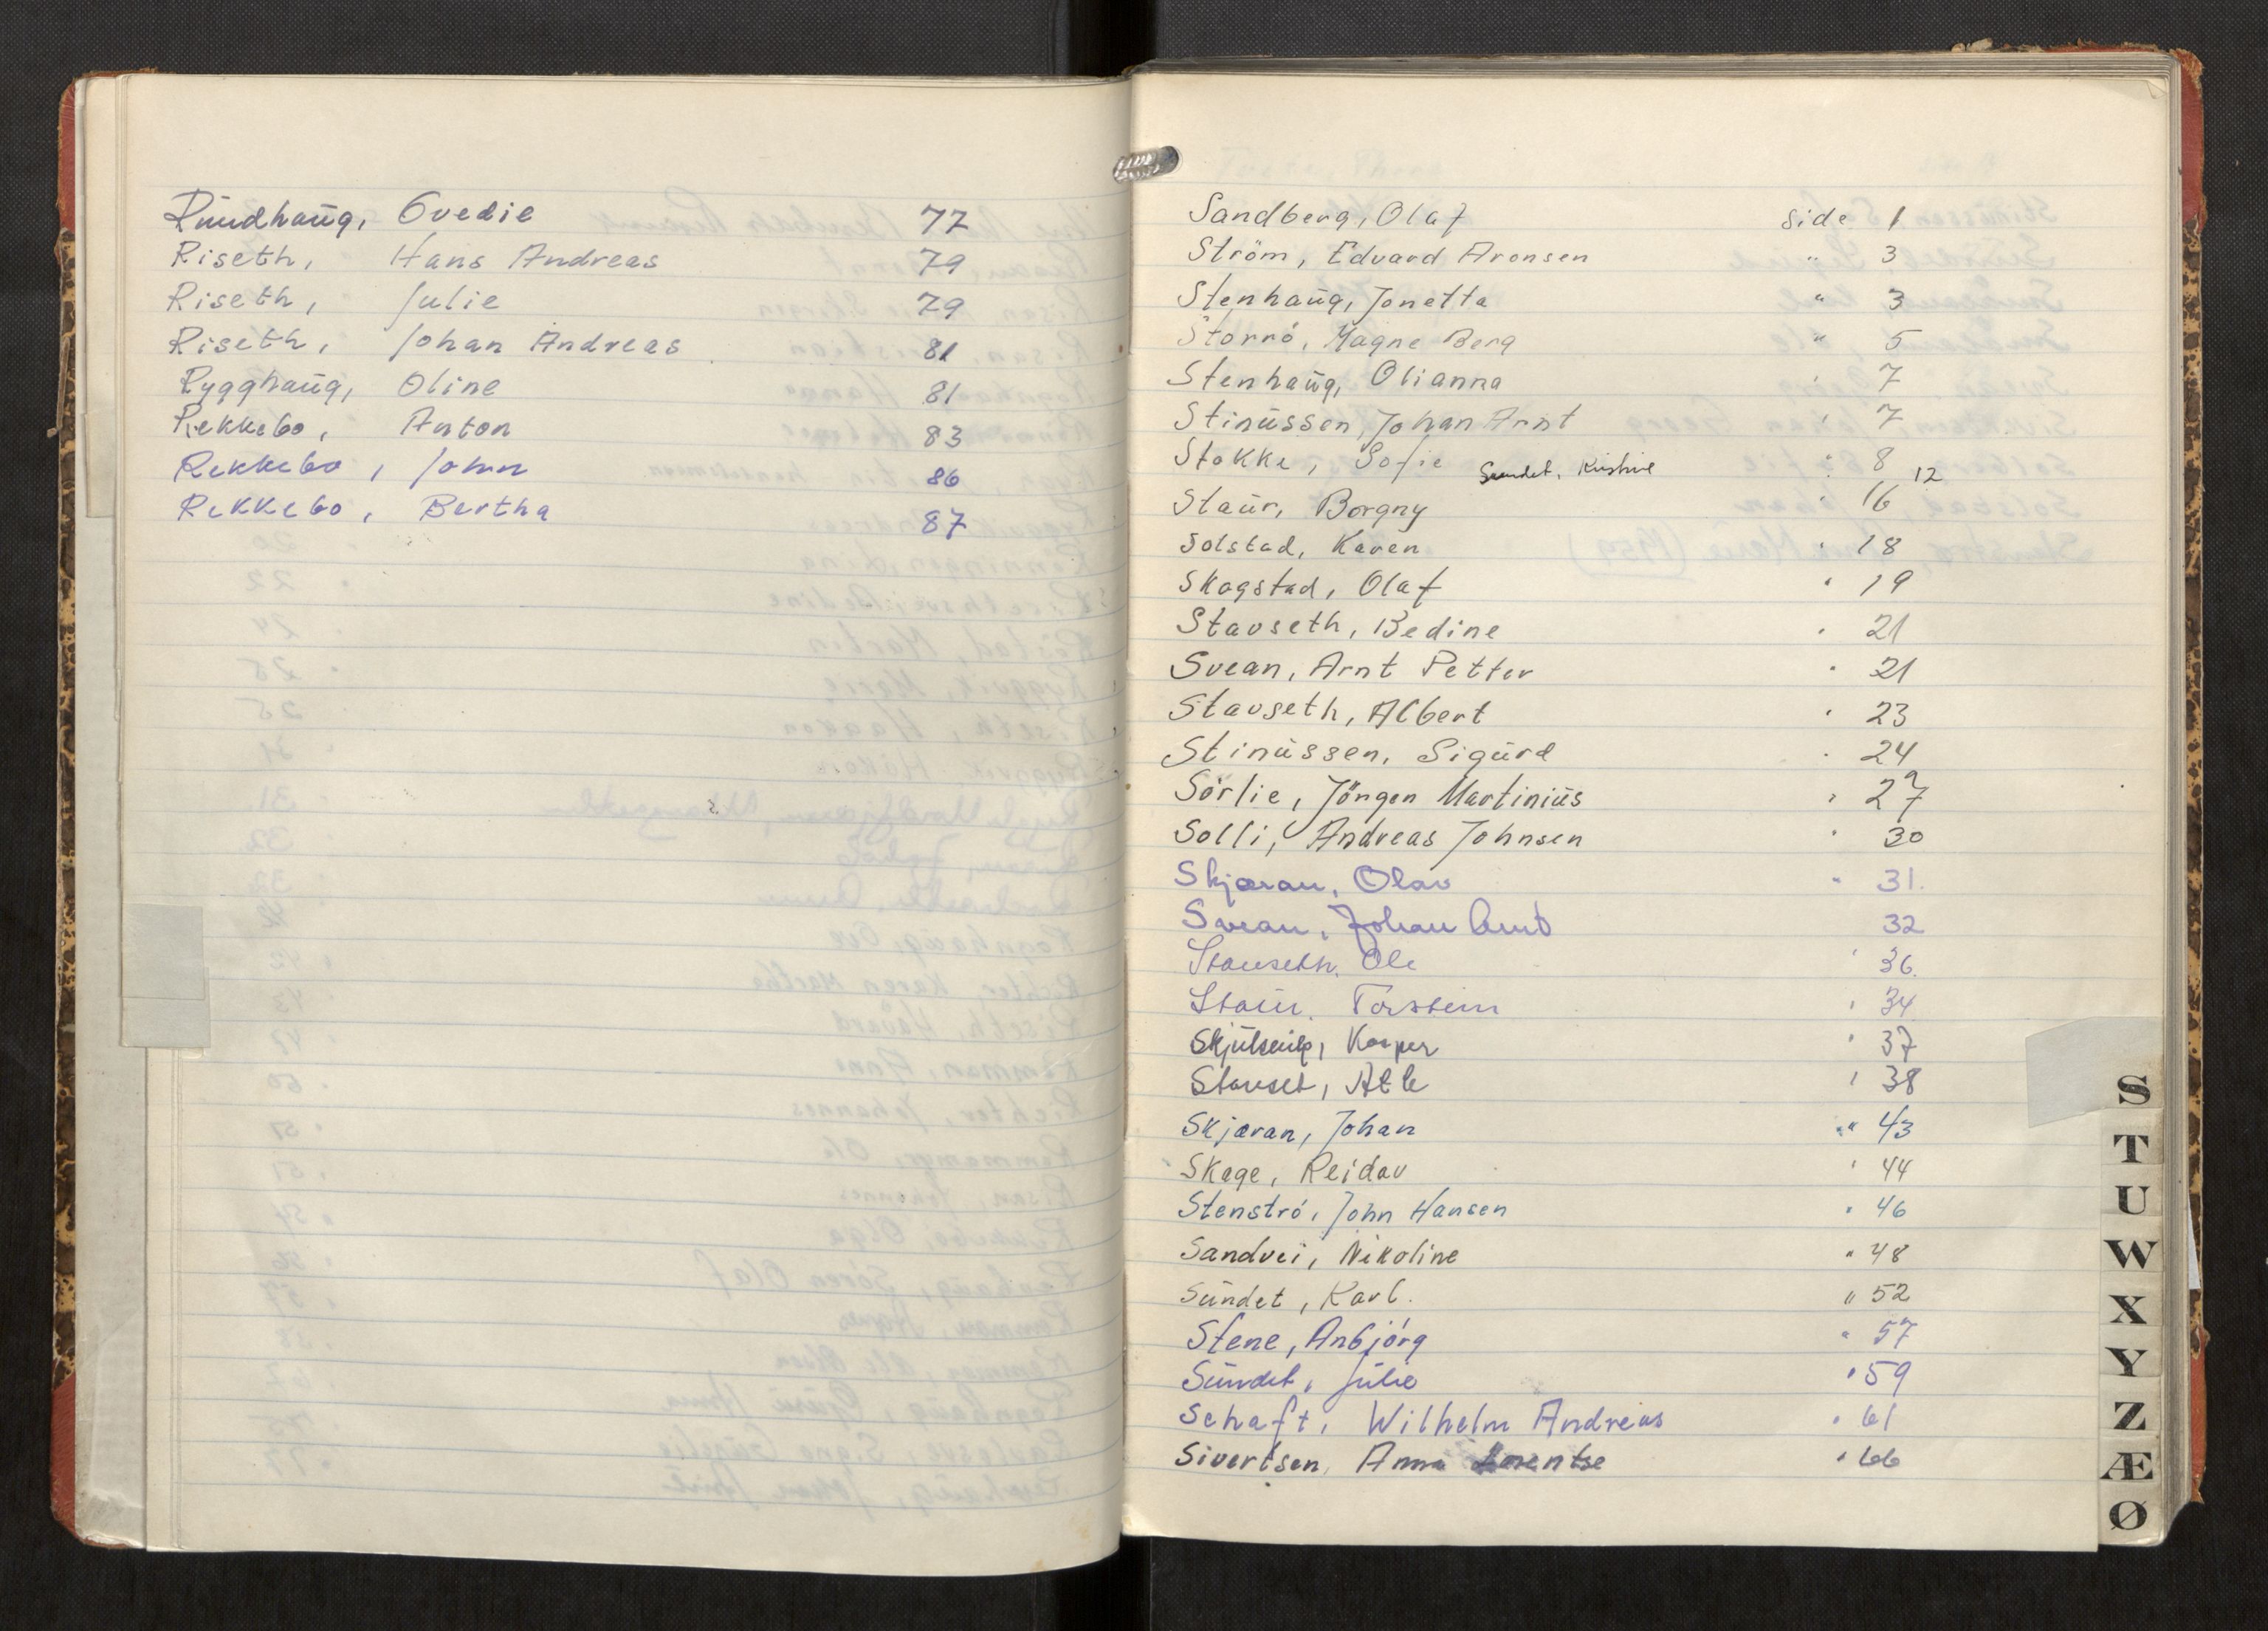 Rŭndhaŭg, Ovedie 77
Riseth, Hans Andreas 79
Riseth, Julie 79
Riseth, Johan Andreas 81
Rygghaŭg, Oline 81
Rekkebo, Anton 83
Rekkebo, John 86
Rekkebo, Bertha 87
Sandberg, Olaf side 1
Ström, Edvard Aronsen " 3
Stenhaŭg, Jonetta " 3
Storrö, Magne Berg " 5
Stenhaŭg, Olianna " 7
Stinŭssen, Johan Arnt " 7
Stokke, Sofie " 8
Sundet, Kristine 12
Staŭr, Borgny " 16
Solstad, Karen " 18
Skogstad, Olaf " 19
Stavseth, Bedine " 21
Svean, Arnt Petter " 21
Stavseth, Albert " 23
Stinŭssen, Sigŭrd " 24
Sörlie, Jörgen Martiniŭs " 27
Solli, Andreas Johnsen " 30
Skjæran, Olav " 31.
Svean, Johan Arnt 32
Stavseth, Ole " 36.
Staŭr, Torstein " 34
Kasper " 37
Stavset, Atle " 38
Skjæran, Johan " 43
Skage, Reidar " 44
Stenströ, John Hansen " 46
Sandvei, Nikoline " 48
Sŭndet, Karl. " 52
Stene, Anbjörg " 57
Sŭndet, Jŭlie " 59
Schaft, Wilhelm Andreas " 61
Sivertsen, Anna " 66
S
T
U
W
X
Y
Z
Æ
Ø